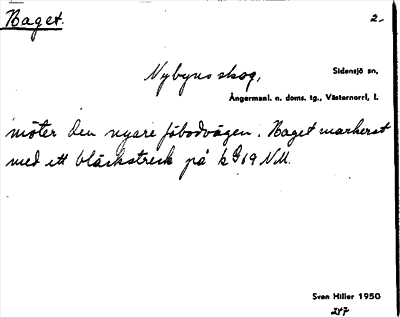 Naget.
2.
Nybyns skog,
Sidensjö sn,
Ångermanl. n. doms. tg., Västernorrl. l.
möter den nyare fäbodvägen. Naget markerat
med ett bläckstreck på k 919 NM.
Sven Hiller 1950
247